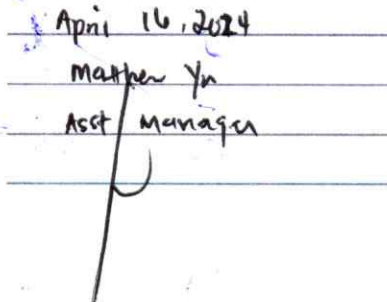 April 16, 2024
Matthew Yu
Asst Manager